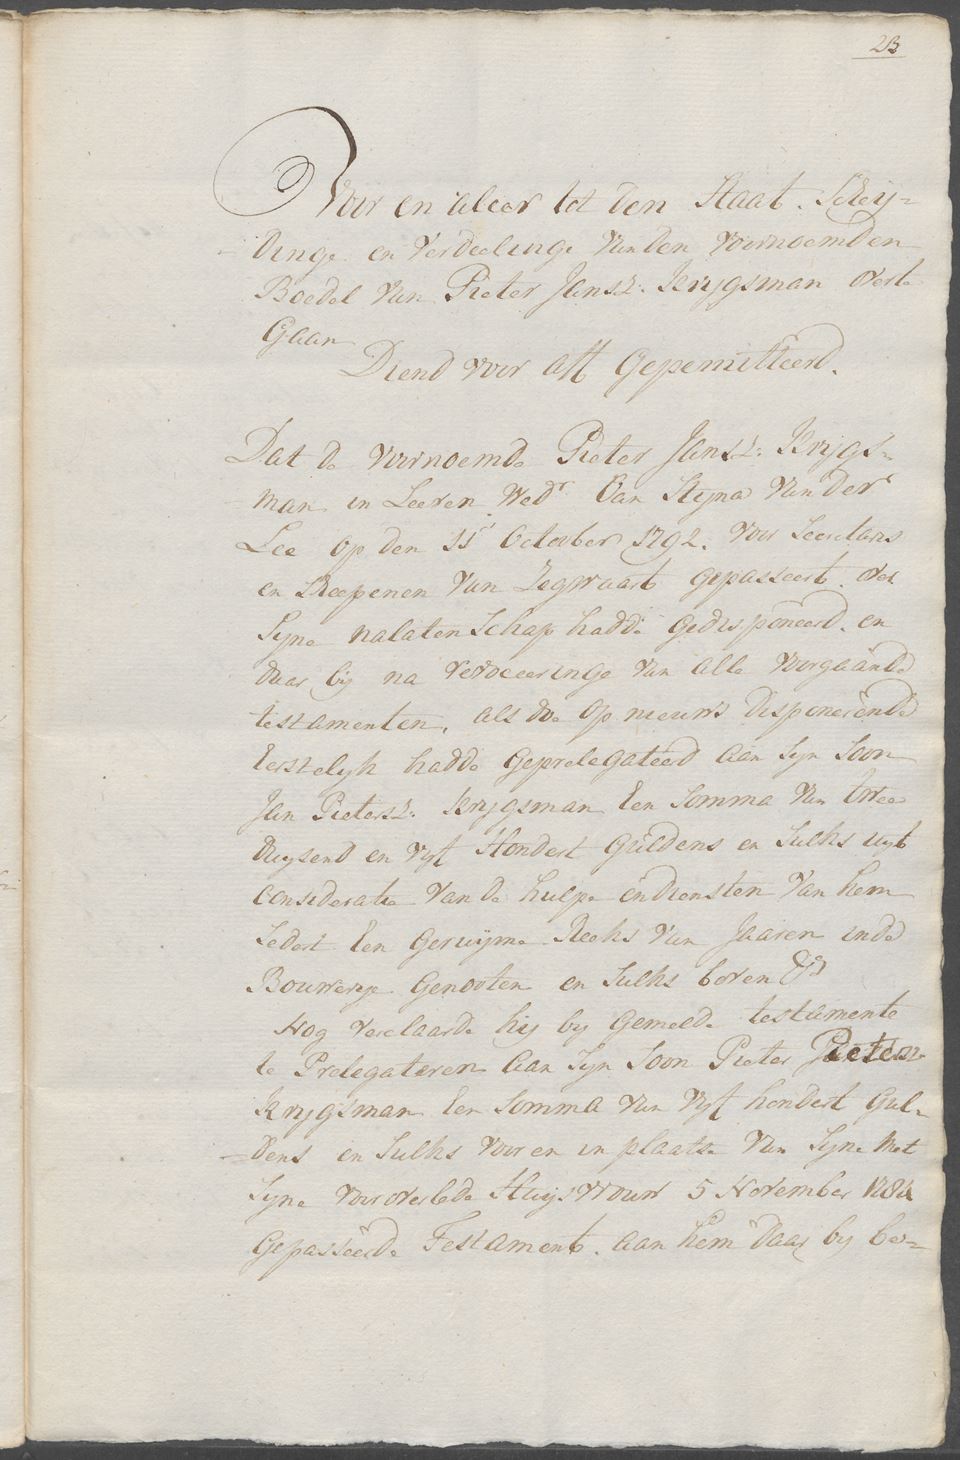 23
Voor en aleer tot den Staat. Scheij-
dinge en Verdeelinge vanden voornoemden
Boedel van Pieter Jansz. Krijgsman over te
Gaan
Diend voor aff Gepremitteerd.
Dat de voornoemde Pieter Jansz. Krijgs-
man in Leeven Wedr. van Stijna van der
Lee op den 11e October 1792. voor Secretaris
en Scheepenen van Zegwaart gepasseert. over
Syne nalatenschap hadde gedisponeerd. en
daar bij na revoceeringe van alle voorgaande
testamenten, als doe op nieuws disponerende
Eerstelijk hadde geprelegateerd aan syn Soon
Jan Pietersz. Krijgsman Een Somma van twee
duysend en vyf Hondert Guldens en Sulks uyt
consideratie van de hulpe en diensten van hem
Sedert Een geruijme Reeks van Jaaren in de
Bouwerye Genooten en Sulks boven
Nog verclaarde hij by gemelde testamente
te Prelegateren aan Syn Soon Pieter Pietersz.
Krijgsman Een Somma van vyf hondert Gul-
dens en Sulks voor en in plaatse van Syne met
Syne vooroverlede Huijsvrouw 5 November
Gepasseerde Testament. aan hem daar by be-